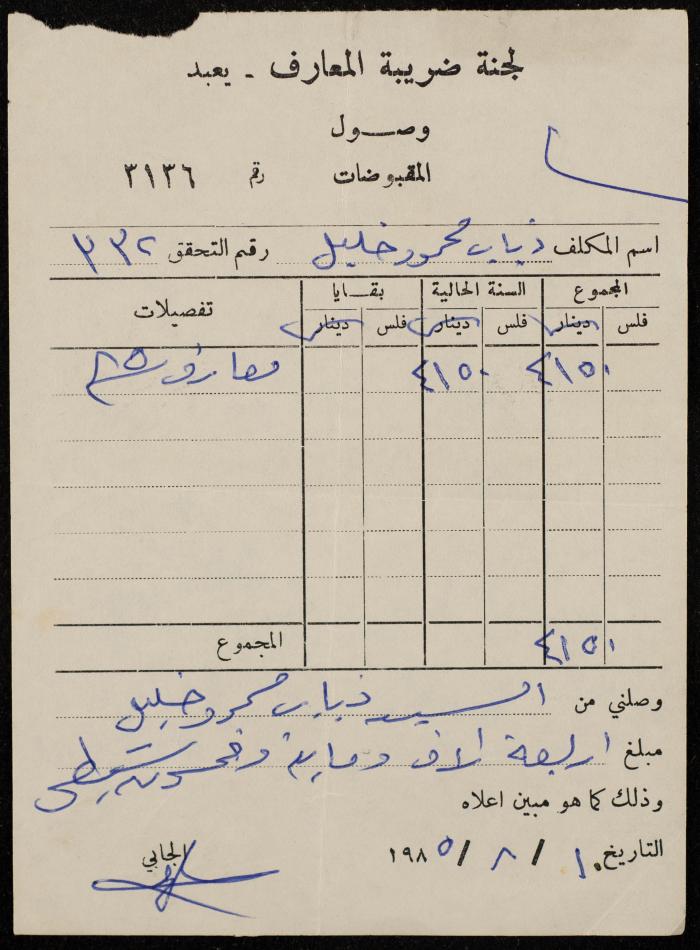 لجنة ضريبة المعارف ـ يعبد
وصـــول
المقبوضات رقم ٣١٣٦
اسم المكلف ذياب محمود خليل رقم التحقق ٣٣٢
المجموع السنة الحالية بقـايا تفصيلات
فلس دينار فلس دينار فلس دينار
٤١٥٠ ٤١٥٠ معارف ٨٥
المجموع ٤١٥٠
وصلني من السيد ذياب محمود خليل
مبلغ اربعة الاف وماية وخمسون شيقل
وذلك كما هو مبين اعلاه
التاريخ ١٠ / ٨ / ١٩٨٥ الجابي